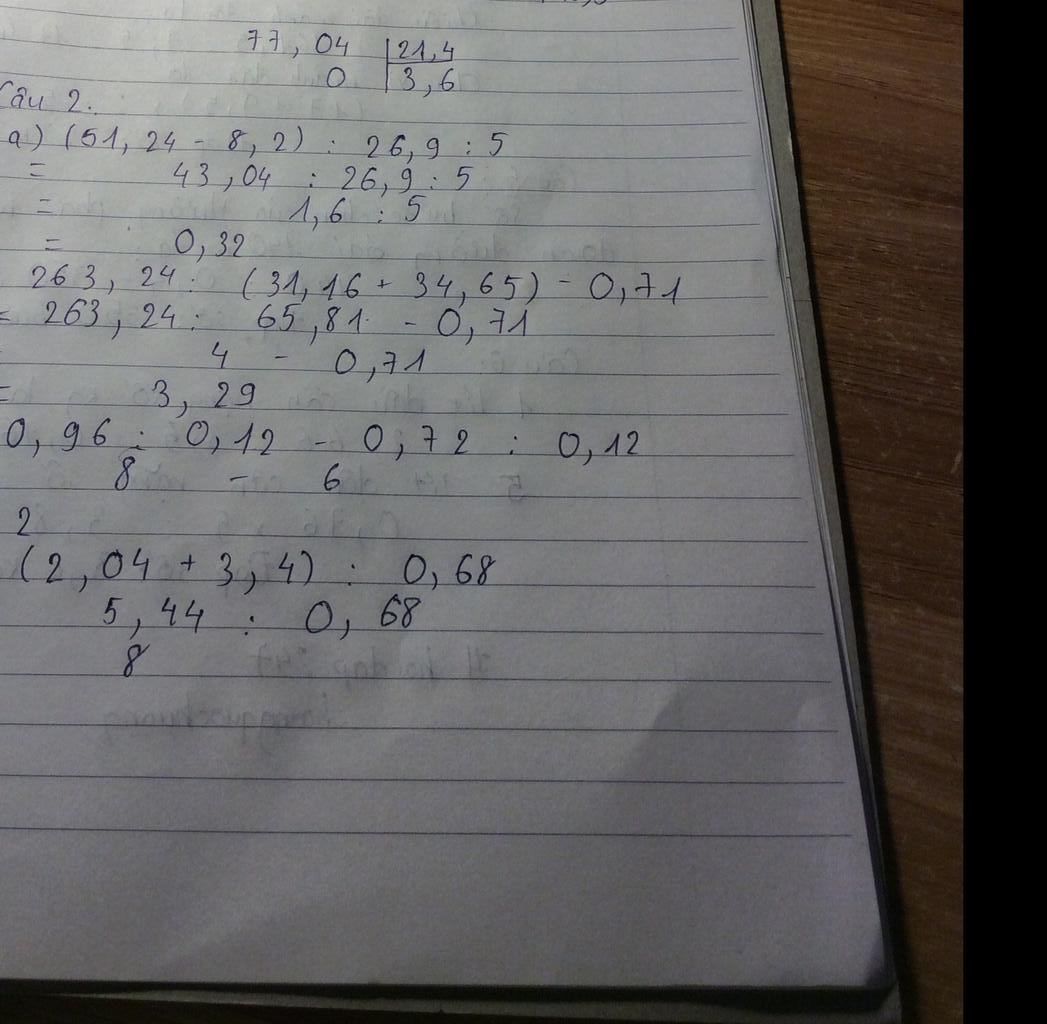 77,04 | 21,4
0 | 3,6
Câu 2.
a) (51,24 - 8,2) : 26,9 : 5
= 43,04 : 26,9 : 5
= 1,6 : 5
= 0,32
263,24 : (31,16 + 34,65) - 0,71
= 263,24 : 65,81 - 0,71
4 - 0,71
= 3,29
0,96 : 0,12 - 0,72 : 0,12
8 - 6
2
(2,04 + 3,4) : 0,68
5,44 : 0,68
8